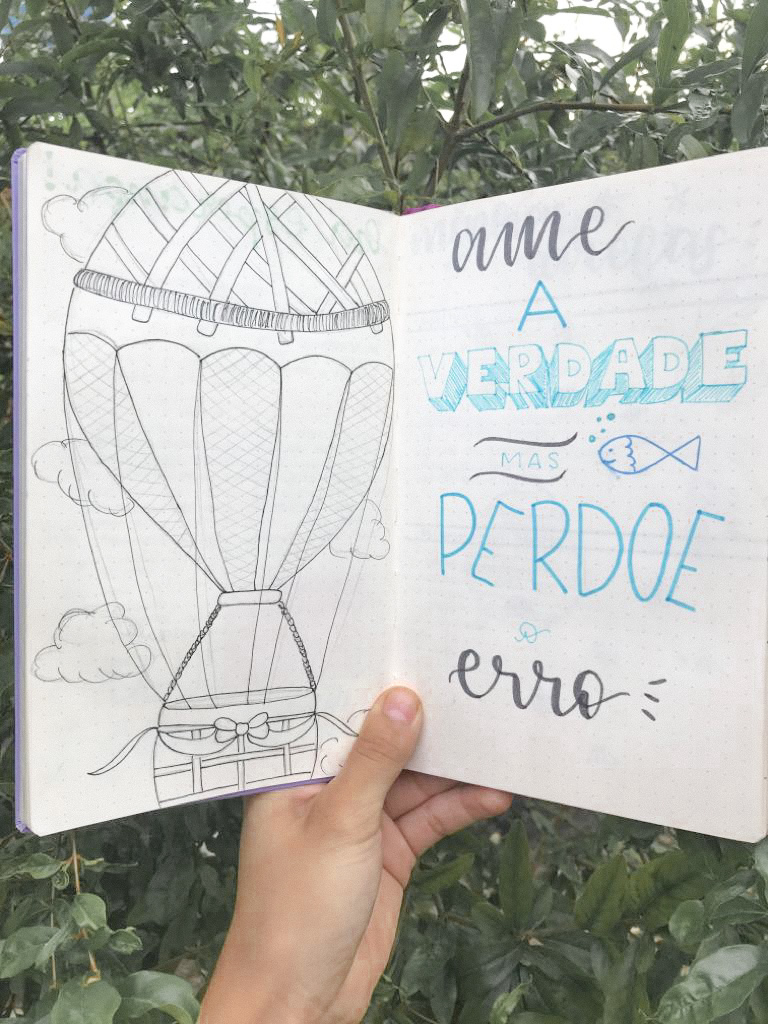 ame
A
VERDADE
MAS
PERDOE
o
erro